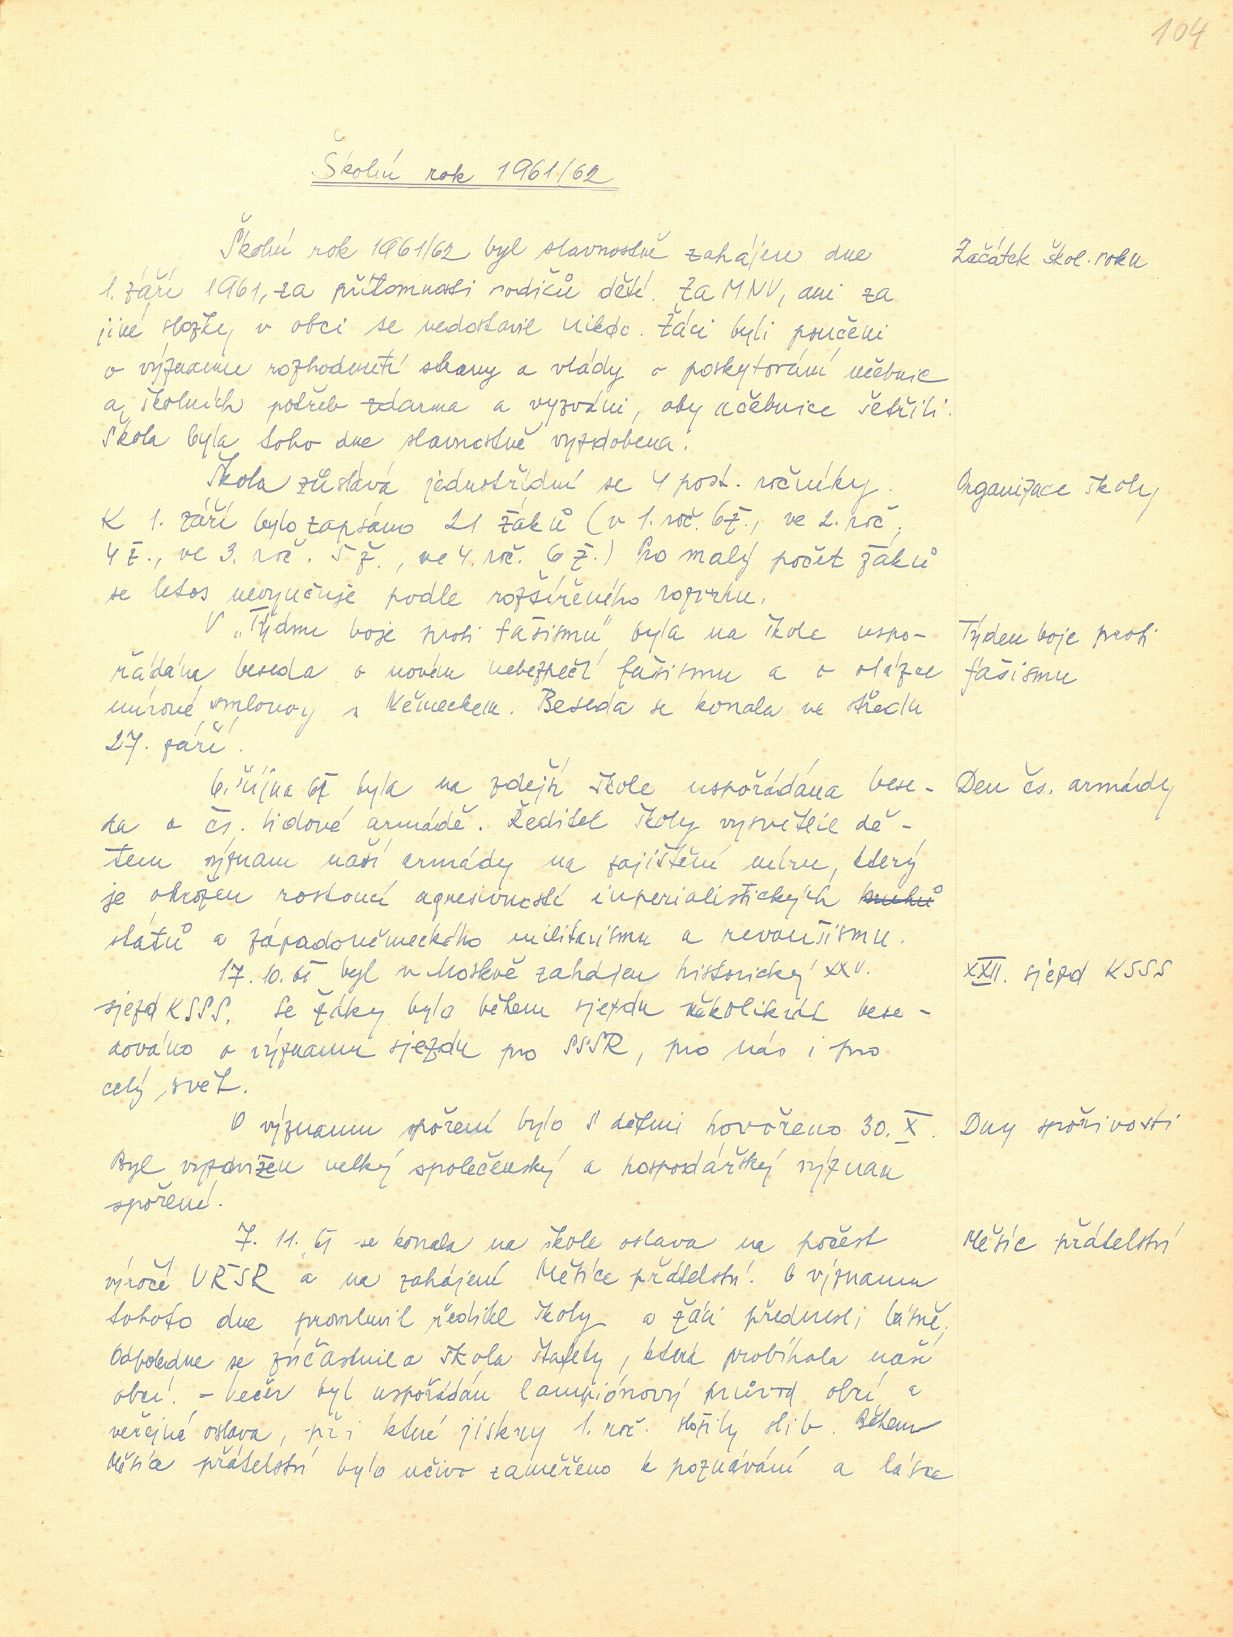 104
Školní rok 1961/62
Školní rok 1961/62 byl slavnostně zahájen dne
Začátek škol. roku
1. září 1961, za přítomnosti rodičů dětí. Za MNV, ani za
jiné složky v obci se nedostavil nikdo. Žáci byli poučeni
o významu rozhodnutí strany a vlády o poskytování učebnic
a školních potřeb zdarma a vyzváni, aby učebnice šetřili.
Škola byla toho dne slavnostně vyzdobena.
Škola zůstává jednotřídní se 4 post. ročníky.
Organizace školy
K 1. září bylo zapsáno 21 žáků (v 1. roč. 6 ž., ve 2. roč.
4 ž., ve 3. roč. 5 ž., ve 4. roč. 6 ž.) Pro malý počet žáků
se letos nevyučuje podle rozšířeného rozvrhu.
V „Týdnu boje proti fašismu" byla na škole uspo-
Týden boje proti
řádána beseda o novém nebezpečí fašismu a o otázce
fašismu
mírové smlouvy s Německem. Beseda se konala ve středu
27. září.
6. října 61 byla na zdejší škole uspořádána bese-
Den čs. armády
da o čs. lidové armádě. Ředitel školy vysvětlil dě-
tem význam naší armády na zajištění míru, který
je ohrožen rostoucí agresivností imperialistických
států a západoněmeckého militarismu a revanšismu.
17. 10. 61 byl v Moskvě zahájen historický XXII.
XXII. sjezd KSSS
sjezd KSSS. Se žáky bylo během sjezdu několikrát bese-
dováno o významu sjezdu pro SSSR, pro nás i pro
celý svět.
O významu spoření bylo s dětmi hovořeno 30. X.
Dny spořivosti
Byl vyzdvižen velký společenský a hospodářský význam
spoření.
7. 11. 61 se konala na škole oslava na počest
Měsíc přátelství
výročí VŘSR a na zahájení Měsíce přátelství. O významu
tohoto dne promluvil ředitel školy a žáci přednesli básně.
Odpoledne se zúčastnila škola štafety, která probíhala naší
obcí. – Večer byl uspořádán lampiónový průvod obcí a
veřejná oslava, při které jiskry 1. roč. složily slib. Během
Měsíce přátelství bylo učivo zaměřeno k poznávání a lásce